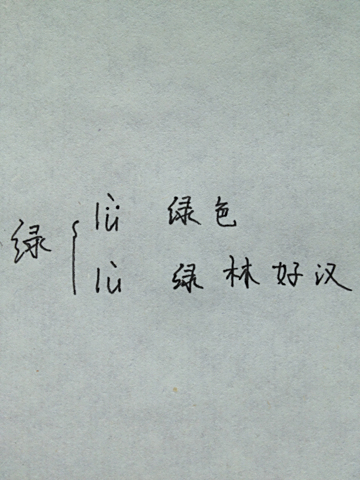 绿
lǜ 绿色
lù 绿林好汉